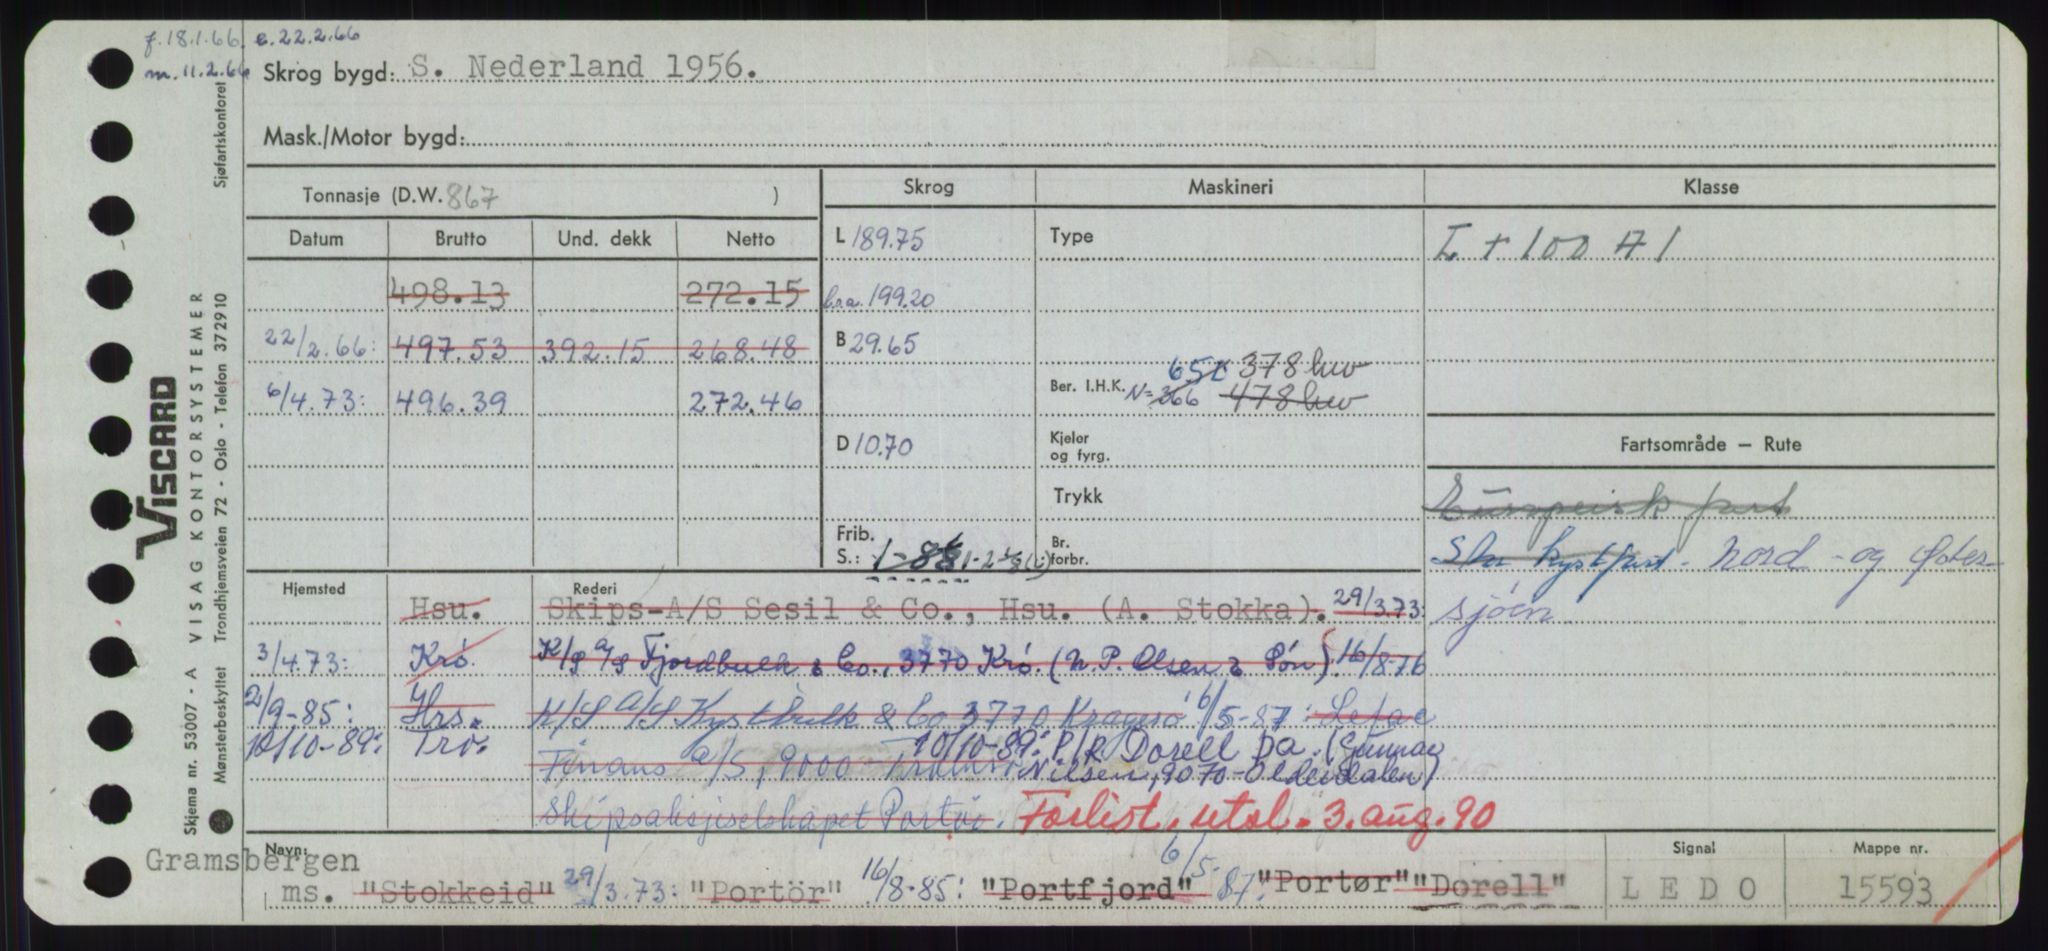 f. 18.1.66. e. 22.2.66
m. 11.2.66
Skrog bygd: S. Nederland 1956.
Mask./Motor bygd:
Tonnasje (D.W. 867 )
Skrog
Maskineri
Klasse
Datum Brutto Und. dekk Netto
L 189.75
Type
L + 100 A 1
498.13 272.15
b.o.a. 199.20
22/2.66: 497.53 392.15 268.48
B 29.65
652 378 hw
6/4.73: 496.39 272.46
Ber. I.H.K. N=366 478 hw
D 10.70
Kjeler og fyrg.
Fartsområde – Rute
Trykk
Europeisk fart
Frib. S.:
Br. forbr.
Stor kystfart. Nord - og Øster-
sjøen.
Hjemsted
Rederi
Hsu. Skips-A/S Sesil & Co., Hsu. (A. Stokka). 29/3.73:
3/4.73: Krö. K/S A/S Fjordbulk & Co., 3770 Krö. (N. P. Olsen & Sön). 16/8-76
2/9-85: Hrs. K/S A/S Kystbulk & Co 3770 Kragerö 6/5-87: Lefac
10/10-89: Trø. 10/10-89: P/R Dorell DA. (Gunnar
Finans A/S, 9000 Tromsø Nilsen, 9070-Olderdalen)
Skipsaksjeselskapet Portör. Forlist, utsl. 3. aug. 90
Navn:
Gramsbergen
ms. "Stokkeid" 29/3.73: "Portör" 16/8-85: "Portfjord" 6/5-87: "Portør" "Dorell"
Signal
LEDO
Mappe nr.
15593
VISCARD
VISAG KONTORSYSTEMER
Skjema nr. 53007 - A
Mønsterbeskyttet Trondhjemsveien 72 - Oslo - Telefon 37 29 10 Sjøfartskontoret